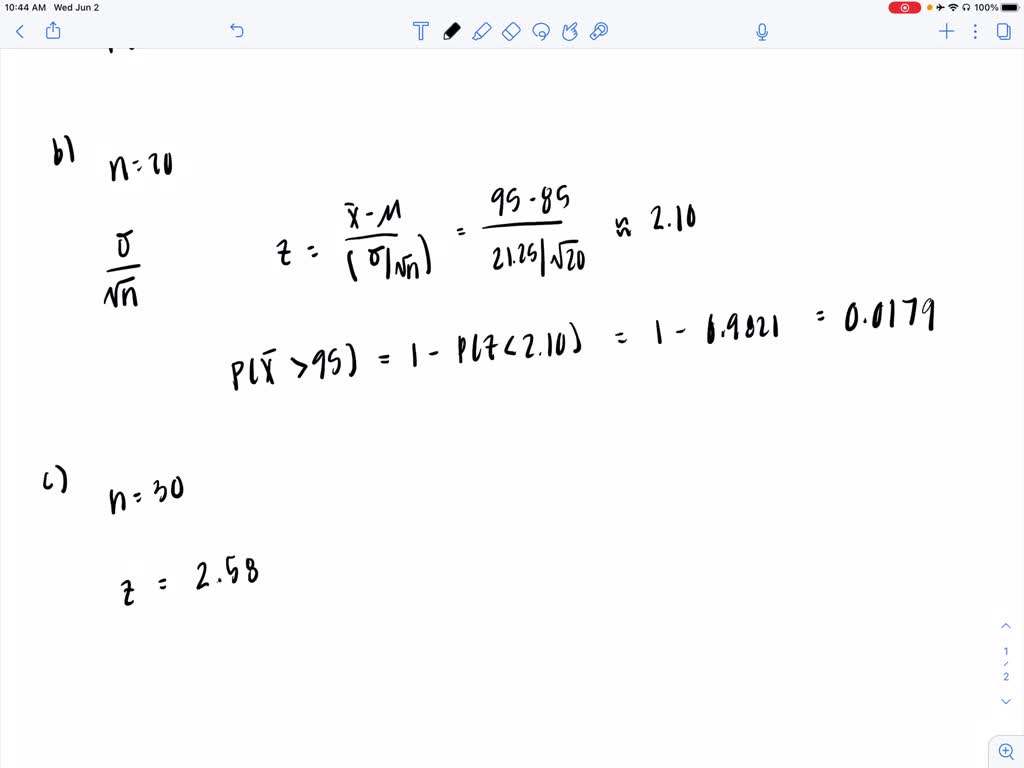 10:44 AM Wed Jun 2
100%
b) n=20
σ/√n
z = (x̄-μ)/(σ/√n) = (95-85)/(21.25/√20) ≈ 2.10
P(x̄ >95) = 1 - P(z<2.10) = 1 - 0.9821 = 0.0179
c) n=30
z = 2.58
1
/
2